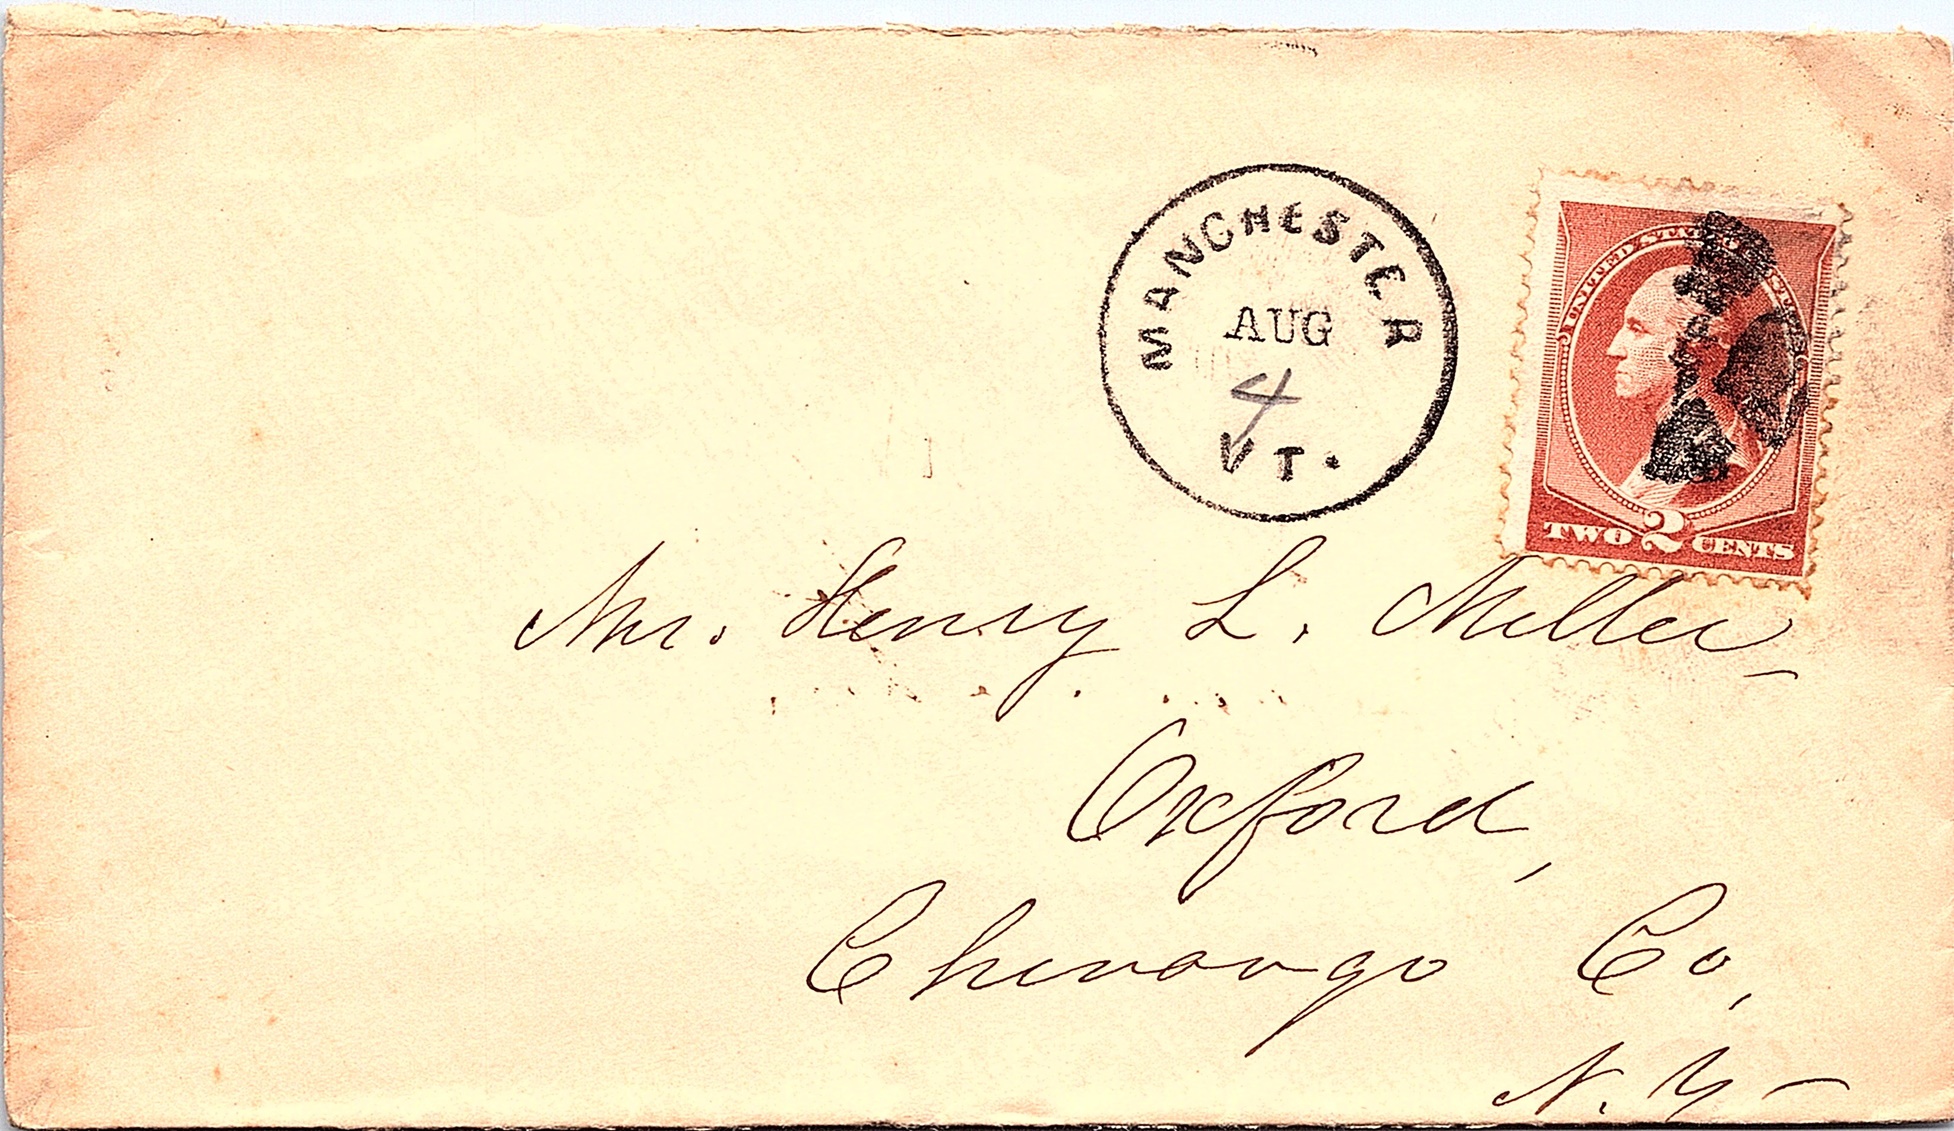 MANCHESTER
AUG
4
VT.
UNITED STATES POSTAGE
TWO 2 CENTS
Mr. Henry L. Miller
Oxford,
Chenango Co,
N. Y